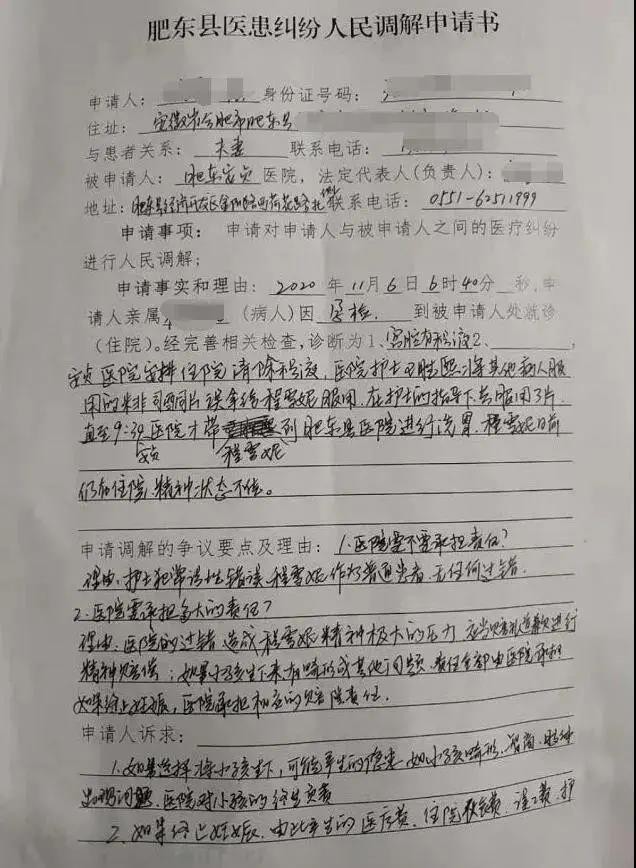 肥东县医患纠纷人民调解申请书
申请人： 身份证号码：
住址： 安徽省合肥市肥东县
与患者关系： 夫妻 联系电话：
被申请人： 肥东安贞 医院，法定代表人(负责人)：
地址： 肥东县经济开发区金阳路 联系电话： 0551-62511999
申请事项： 申请对申请人与被申请人之间的医疗纠纷
进行人民调解；
申请事实和理由： 2020 年 11 月 6 日 6 时 40 分 秒，申
请人亲属 (病人)因 孕检. 到被申请人处就诊
(住院)。经完善相关检查，诊断为 1、宫腔有积液 2、
安贞医院安排住院清除积液，医院护士 将其他病人服
用的米非司酮片误拿给程雪妮服用，在护士的指导下共服用3片.
直至9:30医院才带 到肥东县医院进行洗胃，程雪妮目前
安贞 程雪妮
仍在住院，精神状态不佳。
申请调解的争议要点及理由： 1.医院需不需承担责任?
理由：护士犯常识性错误，程雪妮作为普通患者，无任何过错.
2.医院需承担多大的责任?
理由：医院的过错，造成程雪妮精神极大的压力，应当 进行
精神赔偿；如果小孩生下来有畸形或其他问题，责任全部由医院承担
如果终止妊娠，医院承担相应的赔偿责任.
申请人诉求:
1.如果选择将小孩生下，可能产生的隐患，如小孩畸形、智障、精神
出现问题，医院对小孩的终生负责
2、如果终止妊娠，由此产生的医疗费、住院 费、误工费、护